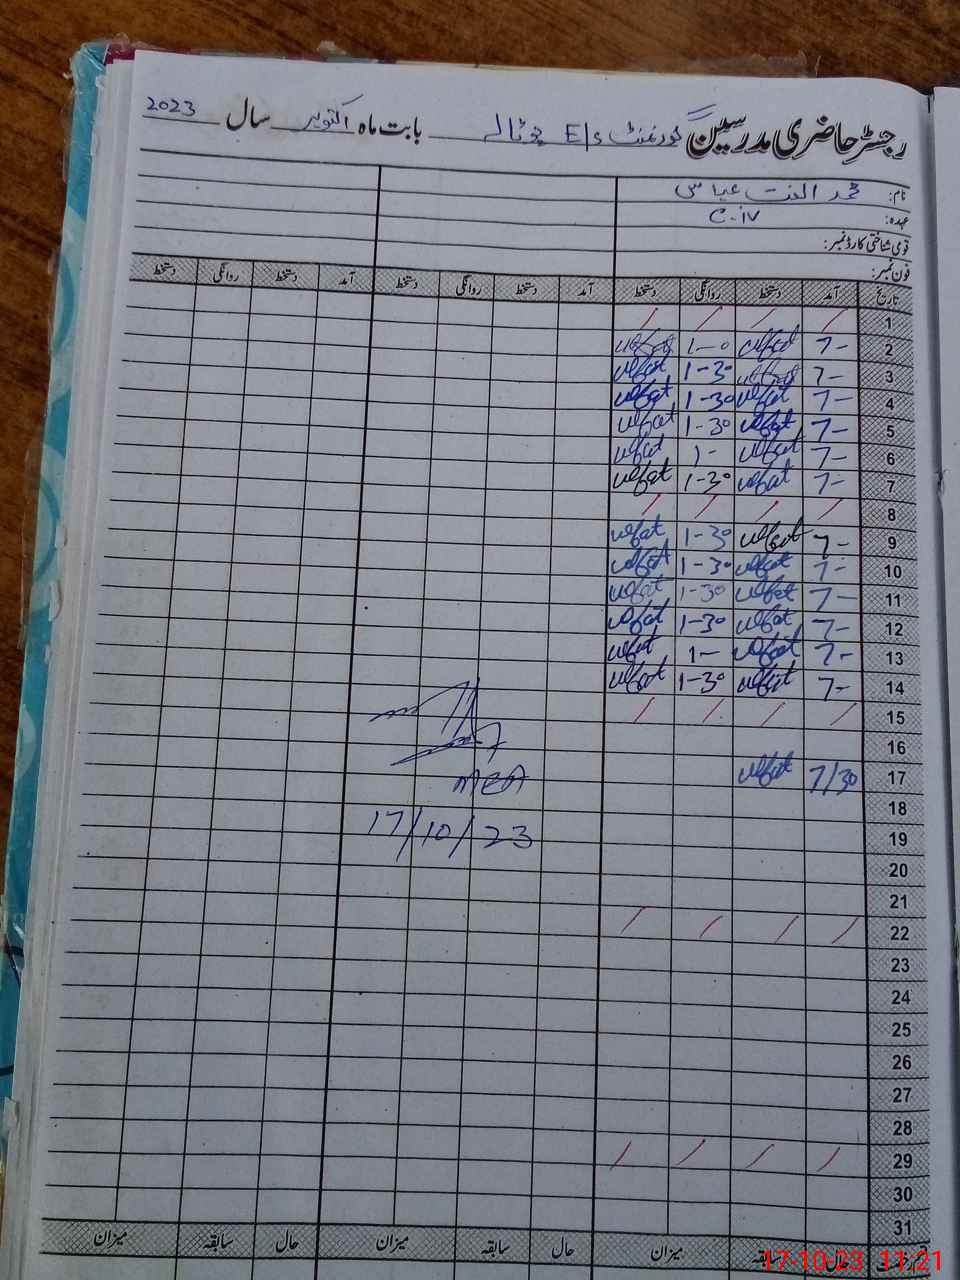 رجسٹر حاضری مدرسین گورنمنٹ E/S چوٹالہ بابت ماہ اکتوبر سال 2023
نام: محمد الفت عباس
عہدہ: C-IV
قومی شناختی کارڈ نمبر:
فون نمبر:
تاریخ آمد دستخط روانگی دستخط آمد دستخط روانگی دستخط آمد دستخط روانگی دستخط
1 / / / /
2 7- 1-0
3 7- 1-30
4 7- 1-30
5 7- 1-30
6 7- 1-
7 7- 1-30
8 / / / /
9 7- 1-30
10 7- 1-30
11 7- 1-30
12 7- 1-30
13 7- 1-
14 7- 1-30
15 / / / /
16
17 7/30
MEA
18
17/10/23
19
20
21
22 / / / /
23
24
25
26
27
28
29 / / / /
30
31
سابقہ میزان حال سابقہ میزان حال سابقہ میزان
17-10-23 11:21